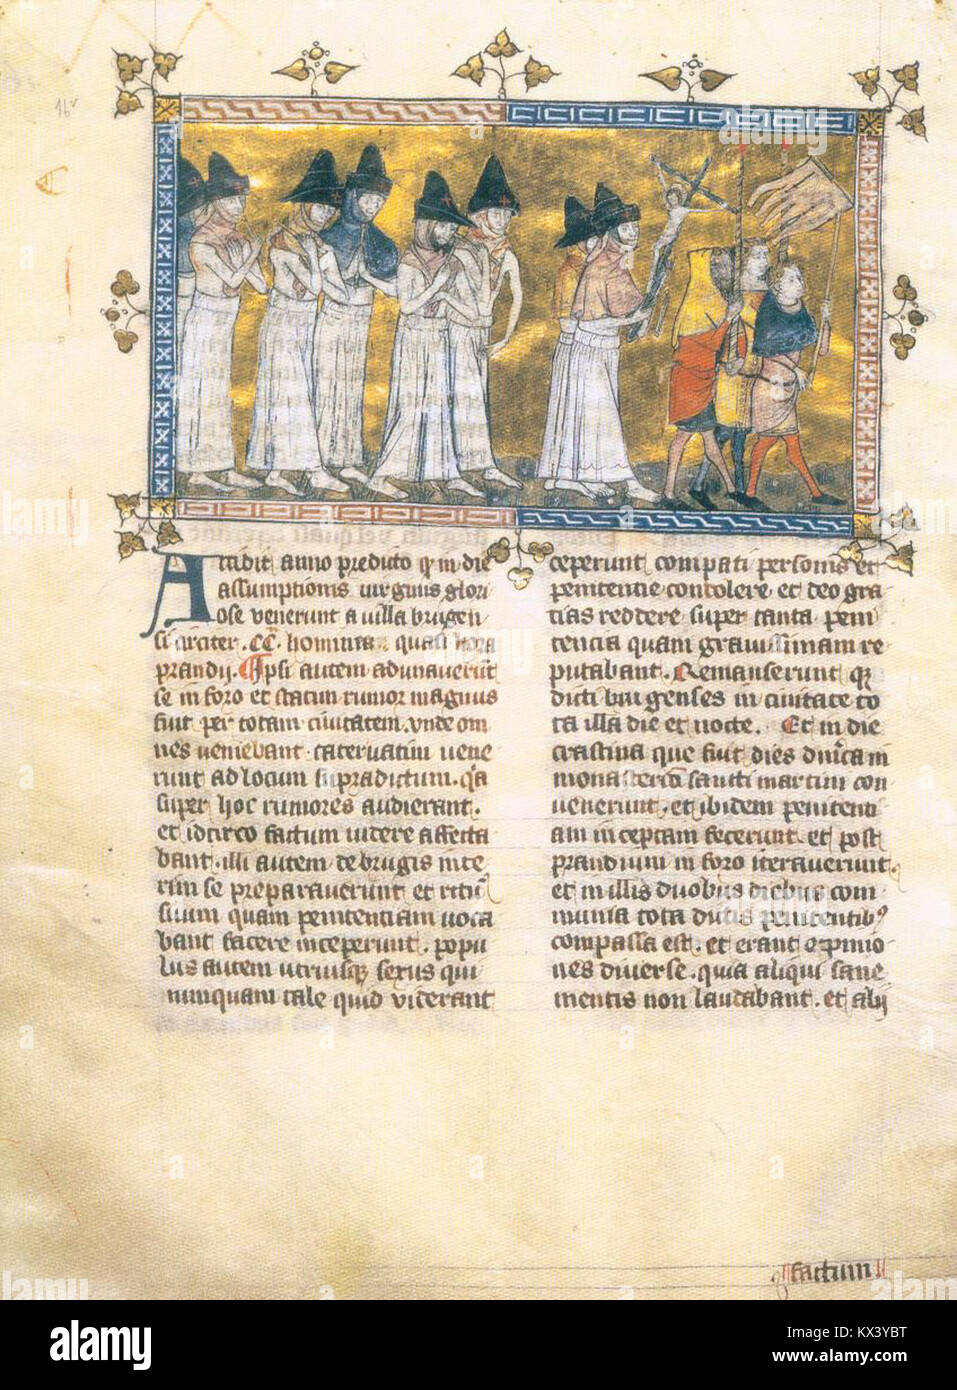 16v
Accidit anno predicto q̃ in die
assumptionis virginis glori
ose venerunt a villa brugen
si circiter .CC. homines quasi hora
prandij. Ipsi autem adunaverũt
se in foro et statim rumor magnus
fuit per totam civitatem. unde om
nes veniebant catervatim vene
runt ad locum supradictum. q̃a
super hoc rumores audierant.
et idcirco factum videre affecta
bant. illi autem de brugis inte
rim se preparaverunt et ritũ
suum quam penitentiam voca
bant facere inceperunt. popu
lus autem utriusq; sexus qui
nunquam tale quid viderant
ceperunt compati personis et
penitentie condolere. et deo gra
tias reddere super tanta peni
tencia quam gravissimam re
putabant. Remanserunt q;
dicti brugenses in civitate to
ta illa die et nocte. Et in die
crastina que fuit dies dñica in
monasterio sancti martini con
venerunt. et ibidem penitenti
am inceptam fecerunt. et post
prandium in foro iteraverunt.
et in illis duobus diebus com
munia tota penitentib9
compassa est. et erant opinio
nes diverse. quia aliqui sane
mentis non laudabant. et alij
factum
alamy
Image ID: KX3YBT
www.alamy.com